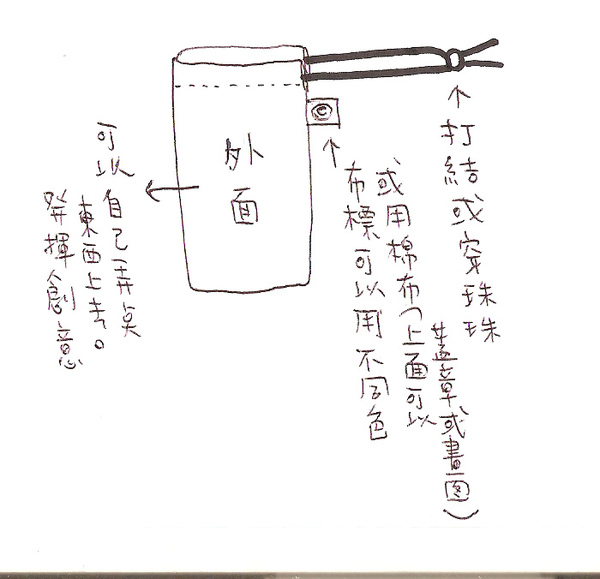 外面
打結或穿珠珠
布標可以用不同色
或用棉布(上面可以
蓋章或畫图)
可以自己弄奌
東西上去。
發揮創意
©